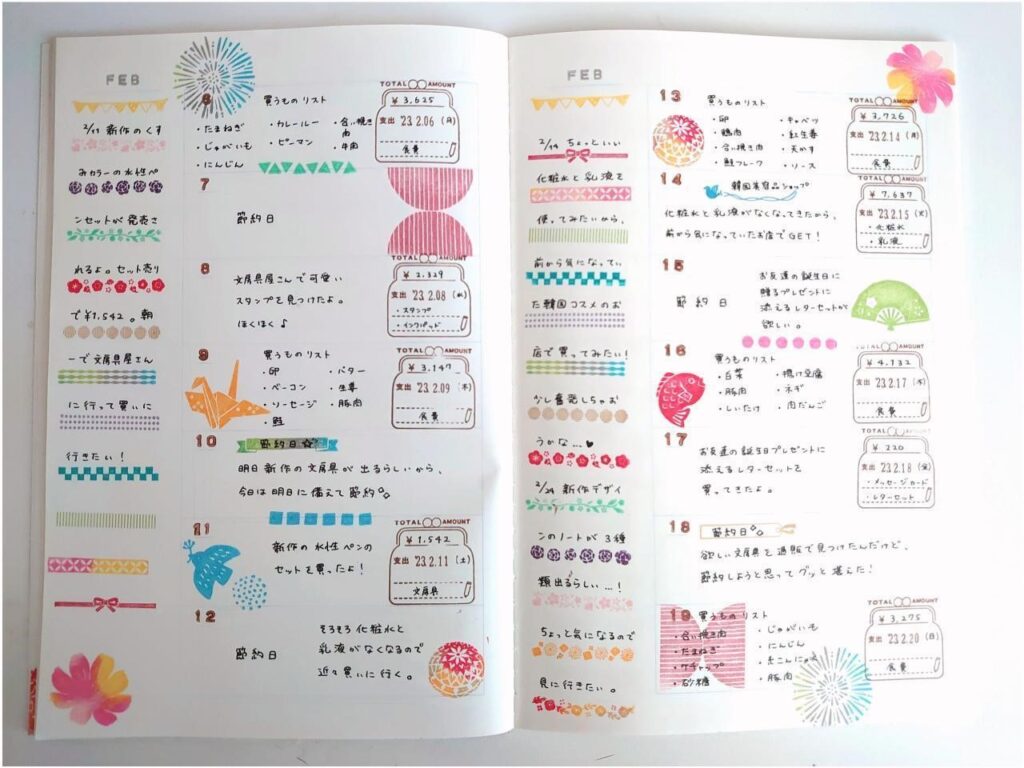 FEB
2/11 新作のくす
みカラーの水性ペ
ンセットが発売さ
れるよ。セット売り
で¥1,542。朝
一で文房具屋さん
に行って買いに
行きたい！
6
買うものリスト
・たまねぎ ・カレールー ・合い挽き肉
・じゃがいも ・ピーマン ・牛肉
・にんじん
TOTAL AMOUNT
¥ 3,625
支出 '23.2.06 (月)
食費
7
節約日
8
文房具屋さんで可愛い
スタンプを見つけたよ。
ほくほく♪
TOTAL AMOUNT
¥ 2,329
支出 '23.2.08 (水)
・スタンプ
・インクパッド
9
買うものリスト
・卵 ・バター
・ベーコン ・生姜
・ソーセージ ・豚肉
・鮭
TOTAL AMOUNT
¥ 3,147
支出 '23.2.09 (木)
食費
10
節約日☆
明日新作の文房具が出るらしいから、
今日は明日に備えて節約。
11
新作の水性ペンの
セットを買ったよ！
TOTAL AMOUNT
¥ 1,542
支出 '23.2.11 (土)
文房具
12
節約日
そろそろ化粧水と
乳液がなくなるので
近々買いに行く。
FEB
2/14 ちょっといい
化粧水と乳液を
使ってみたいから、
前から気になってい
た韓国コスメのお
店で買ってみたい！
少し奮発しちゃお
うかな…♥
2/24 新作デザイ
ンのノートが3種
類出るらしい…！
ちょっと気になるので
見に行きたい。
13
買うものリスト
・卵 ・キャベツ
・鶏肉 ・紅生姜
・合い挽き肉 ・天かす
・鮭フレーク ・ソース
TOTAL AMOUNT
¥ 3,726
支出 '23.2.14 (月)
食費
14
韓国美容品ショップ
化粧水と乳液がなくなってきたから、
前から気になっていたお店でGET！
TOTAL AMOUNT
¥ 7,637
支出 '23.2.15 (火)
・化粧水
・乳液
15
節約日
お友達の誕生日に
贈るプレゼントに
添えるレターセットが
欲しい。
16
買うものリスト
・白菜 ・揚げ豆腐
・豚肉 ・ネギ
・しいたけ ・肉だんご
TOTAL AMOUNT
¥ 4,132
支出 '23.2.17 (木)
食費
17
お友達の誕生日プレゼントに
添えるレターセットを
買ってきたよ。
TOTAL AMOUNT
¥ 220
支出 '23.2.18 (金)
・メッセージカード
・レターセット
18
節約日
欲しい文房具を通販で見つけたんだけど、
節約しようと思ってグッと堪えた！
19
買うものリスト
・合い挽き肉 ・じゃがいも
・たまねぎ ・にんじん
・ケチャップ ・糸こんにゃく
・砂糖 ・豚肉
TOTAL AMOUNT
¥ 3,275
支出 '23.2.20 (日)
食費